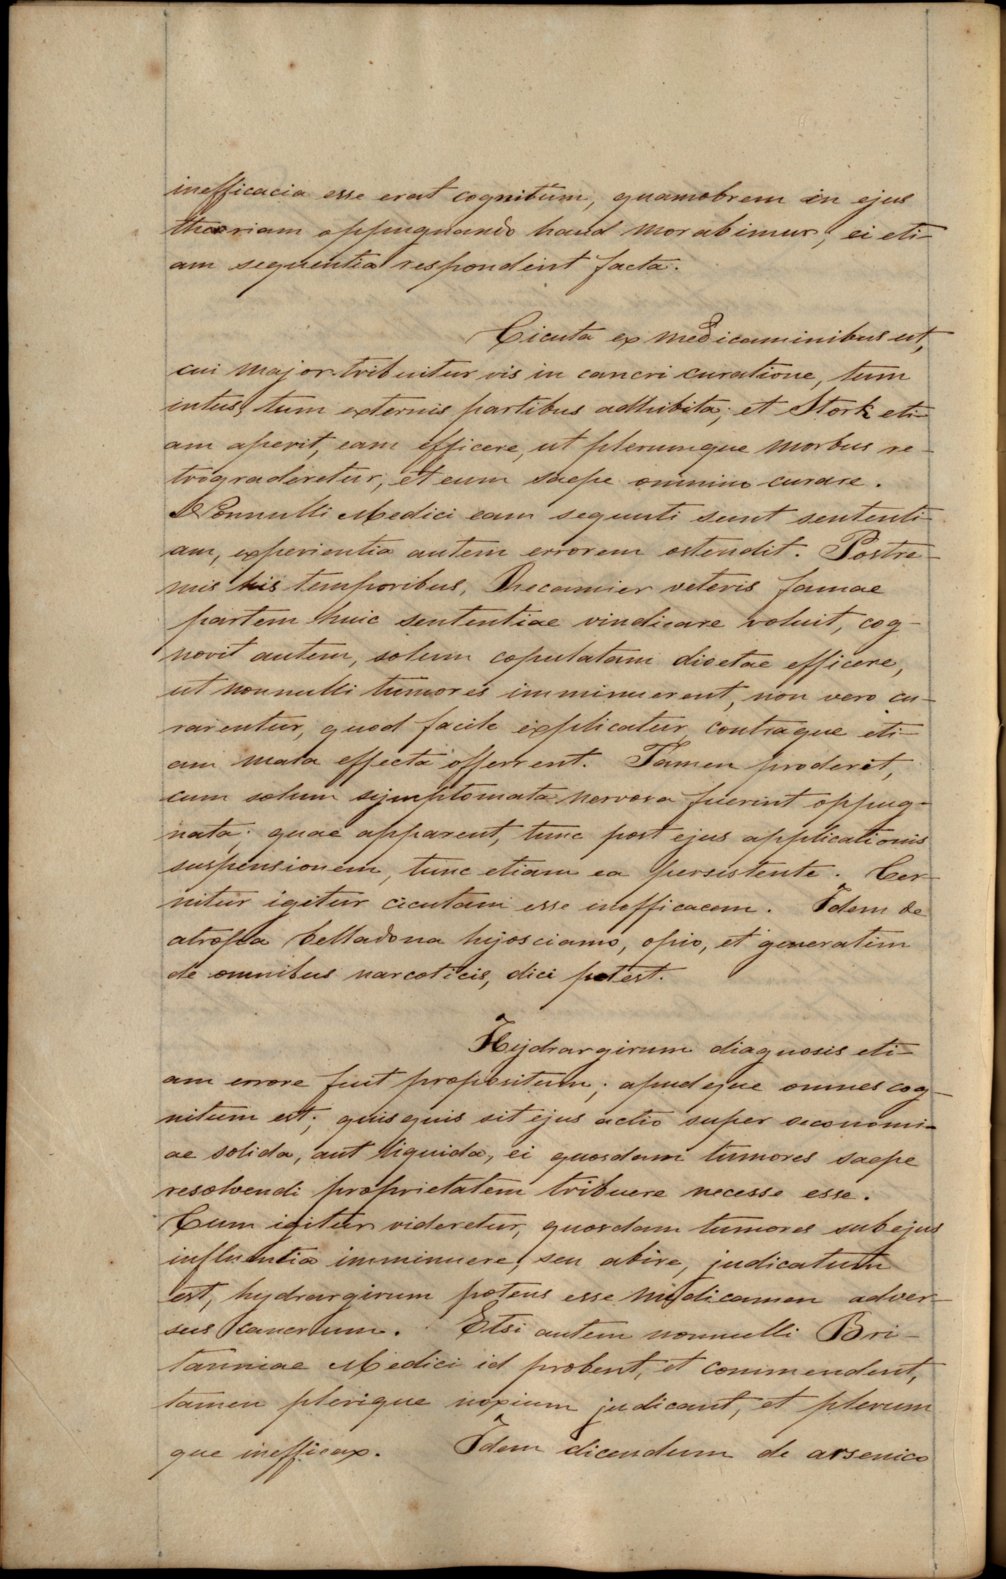 inefficacia esse erat cognitum, quamobrem in ejus
theoriam oppugnando haud morabimur, ei eti-
am sequentia respondent facta.
Cicuta ex medicaminibus est,
cui major tribuitur vis in cancri curatione, tum
intus, tum externis partibus adhibita; et Stork eti-
am aperit, eam efficere, ut plerumque morbus re-
trograderetur, et eum saepe omnino curare.
Nonnulli Medici eam sequuti sunt sententi-
am, experientia autem errorem ostendit. Postre-
mis his temporibus, Recamier veteris famae
partem huic sententiae vindicare voluit, cog-
novit autem, solum copulatam dioetae efficere,
ut nonnulli tumores imminuerent, non vero cu-
rarentur, quod facile explicatur contraque eti-
am mala effecta offerrent. Tamen proderit,
cum solum symptomata nervosa fuerint oppug-
nata; quae apparent, tunc post ejus applicationis
suspensionem, tunc etiam ea persistente. Cer-
nitur igitur cicutam esse inefficacem. Idem de
atropa belladona hijosciamo, opio, et generatim
de omnibus narcoticis, dici potest.
Hijdrargirum diagnosis eti-
am errore fuit propositum; apudque omnes cog-
nitum est; quisquis sit ejus actio super oeconomi-
ae solida, aut liquida, ei quosdam tumores saepe
resolvendi proprietatem tribuere necesse esse.
Cum igitur videretur, quosdam tumores sub ejus
influentia imminuere, seu abire, judicatum
est, hydrargirum potens esse medicamen adver-
sus cancrum. Etsi autem nonnulli Bri-
tanniae Medici id probent, et commendent,
tamen plerique noxium judicant, et plerum
que inefficax. Idem dicendum de arsenico